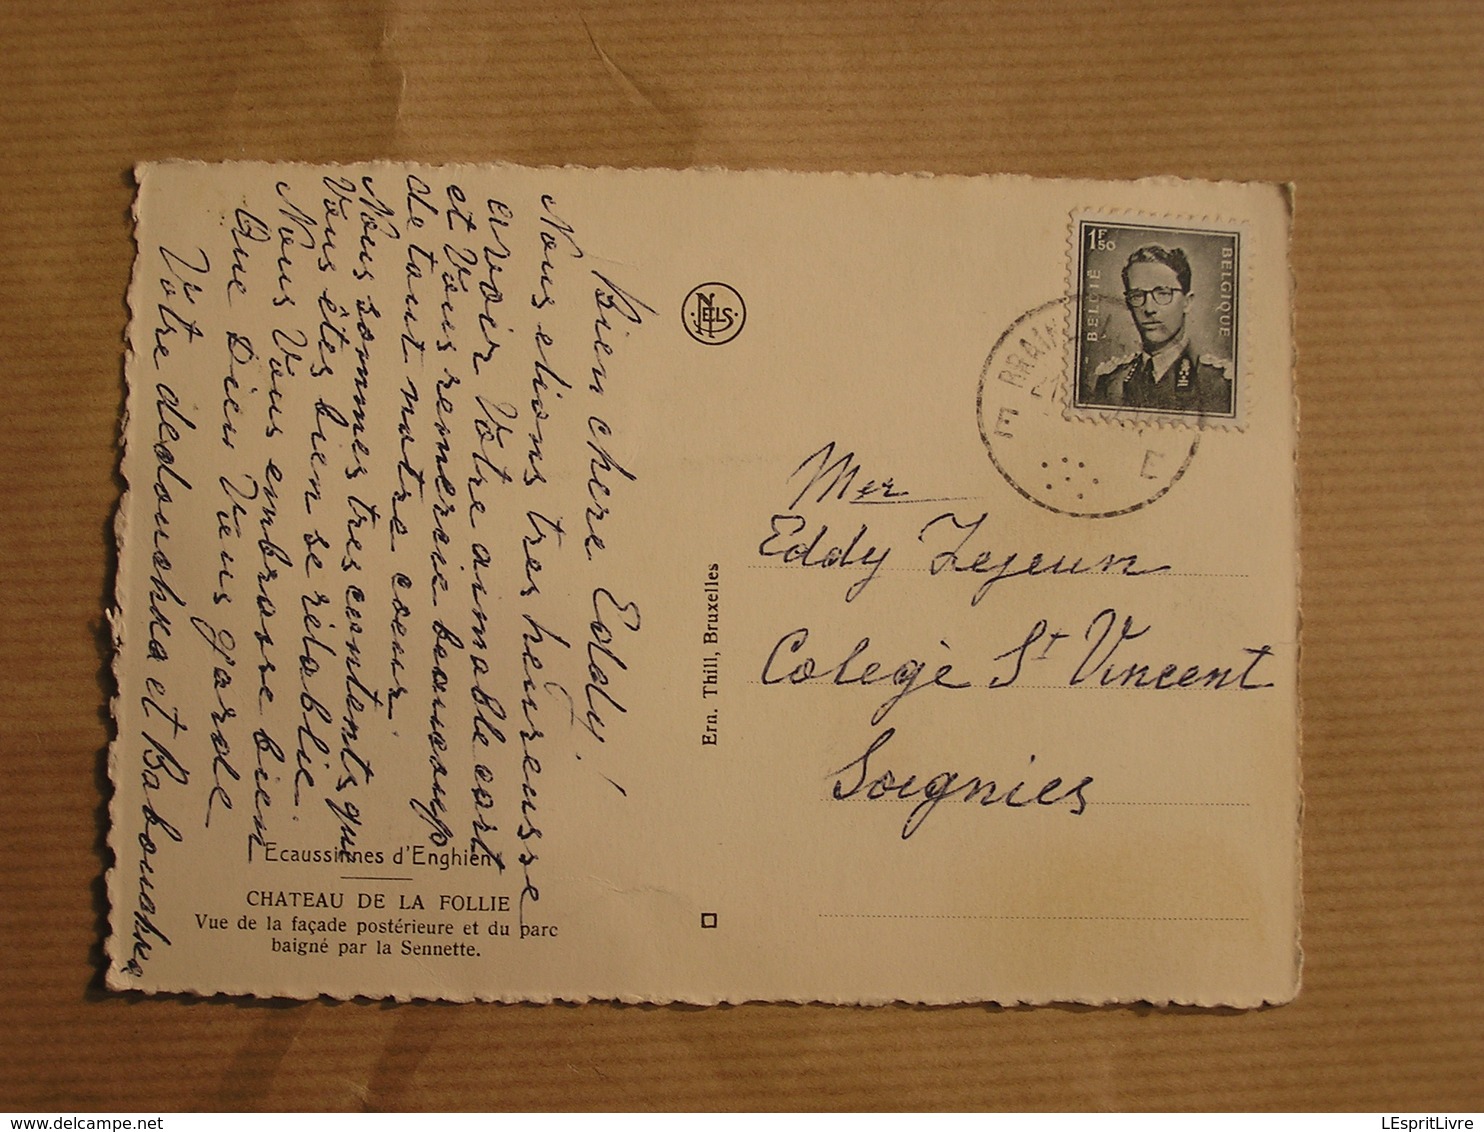 Bien chere Eddy!
Nous etions tres heureusse
avoir Vôtre aimable cart
et Vous remercie beaucoup
de tout notre coeur.
Nous sommes tres contents que
Vous êtes bien se rétablie.
Nous Vous embrasse bien
Que Dieu Vous garde
Votre dedouchka et Babouchka
Ecaussinnes d'Enghien
CHATEAU DE LA FOLLIE
Vue de la façade postérieure et du parc
baigné par la Sennette.
NELS
Ern. Thill, Bruxelles
1F50
BELGIË
BELGIQUE
BRAIN
E
E
Mer
Eddy Lejeun
Colegè St Vincent
Soignies
LEspritLivre